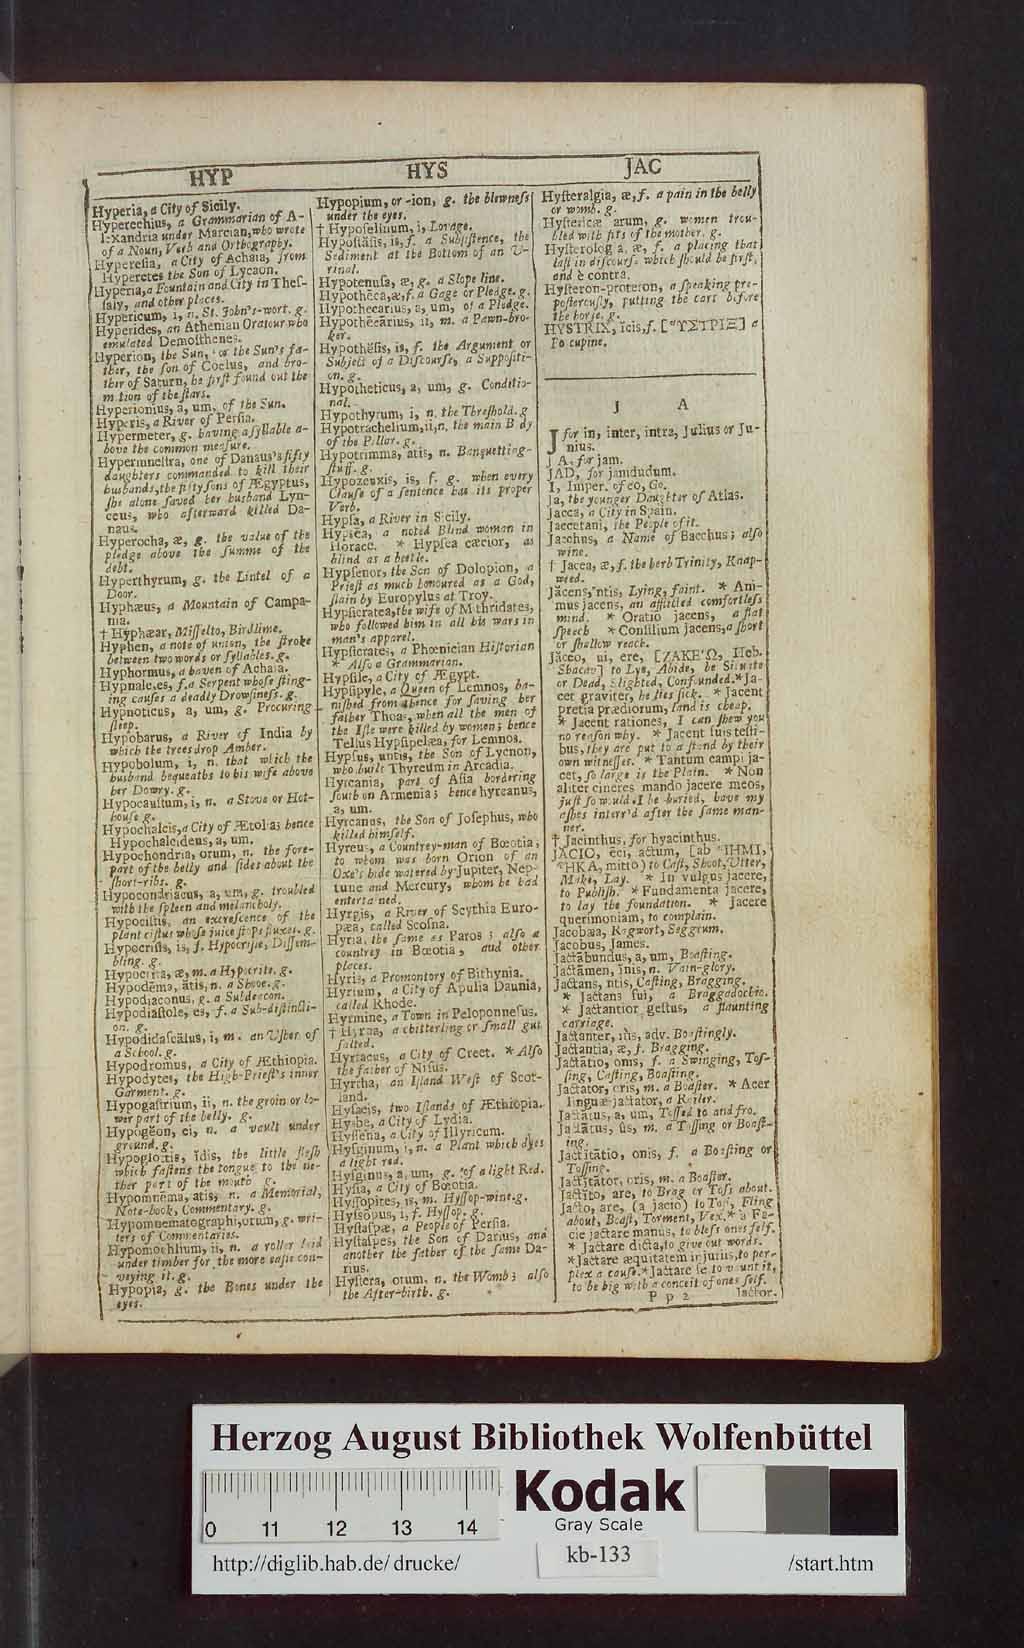 HYP
HYS
JAC
Hyperia, a City of Sicily.
Hyperechius, a Grammarian of A-
lexandria under Marcian, who wrote
of a Noun, Verb and Orthography.
Hyperesia, a City of Achaia, from
Hyperetes the Son of Lycaon.
Hyperia, a Fountain and City in Thes-
saly, and other places.
Hypericum, i, n. St. John's-wort. g.
Hyperides, an Athenian Oratour who
emulated Demosthenes.
Hyperion, the Sun, or the Sun's fa-
ther, the son of Coelus, and bro-
ther of Saturn, he first found out the
motion of the stars.
Hyperionius, a, um, of the Sun.
Hyperis, a River of Persia.
Hypermeter, g. having a syllable a-
bove the common measure.
Hypermnestra, one of Danaus's fifty
daughters commanded to kill their
husbands, the fifty sons of Ægyptus,
she alone saved her husband Lyn-
ceus, who afterward killed Da-
naus.
Hyperocha, æ, g. the value of the
pledge above the summe of the
debt.
Hyperthyrum, g. the Lintel of a
Door.
Hyphæus, a Mountain of Campa-
nia.
† Hyphæar, Misselto, Birdlime.
Hyphen, a note of union, the stroke
between two words or syllables. g.
Hyphormus, a haven of Achaia.
Hypnale, es, f. a Serpent whose sting-
ing causes a deadly Drowsiness. g.
Hypnoticus, a, um, g. Procuring
sleep.
Hypobarus, a River of India by
which the trees drop Amber.
Hypobolum, i, n. that which the
husband bequeaths to his wife above
her Dowry. g.
Hypocaustum, i, n. a Stove or Hot-
house g.
Hypochalcis, a City of Ætolia; hence
Hypochalcideus, a, um.
Hypochondria, orum, n. the fore-
part of the belly and sides about the
short-ribs. g.
Hypocondriacus, a, um, g. troubled
with the spleen and melancholy.
Hypocistus, an excrescence of the
plant cistus whose juice stops fluxes. g.
Hypocrisis, is, f. Hypocrisie, Dissem-
bling. g.
Hypocrita, æ, m. a Hypocrite. g.
Hypodēma, ătis, n. a Shooe. g.
Hypodiaconus, g. a Subdeacon.
Hypodiastole, es, f. a Sub-distincti-
on. g.
Hypodidascălus, i, m. an Usher of
a School. g.
Hypodromus, a City of Æthiopia.
Hypodytes, the High-Priest's inner
Garment. g.
Hypogastrium, ii, n. the groin or lo-
wer part of the belly. g.
Hypogēon, ei, n. a vault under
ground. g.
Hypoglottis, ĭdis, the little flesh
which fastens the tongue to the ne-
ther part of the mouth g.
Hypomnēma, atis, n. a Memorial,
Note-book, Commentary. g.
Hypomnematographi, orum, g. wri-
ters of Commentaries.
Hypomochlium, ii, n. a roller laid
under timber for the more easie con-
veying it. g.
Hypopia, g. the Bones under the
eyes.
Hypopium, or -ion, g. the blewness
under the eyes.
† Hyposelinum, i, Lovage.
Hypostăsis, is, f. a Subsistence, the
Sediment at the Bottom of an U-
rinal.
Hypotenusa, æ, g. a Slope line.
Hypothēca, æ, f. a Gage or Pledge. g.
Hypothecarius, a, um, of a Pledge.
Hypothēcārius, ii, m. a Pawn-bro-
ker.
Hypothĕsis, is, f. the Argument or
Subject of a Discourse, a Suppositi-
on. g.
Hypotheticus, a, um, g. Conditio-
nal.
Hypothyrum, i, n. the Threshold. g
Hypotrachelium, ii, n. the main Body
of the Pillar. g.
Hypotrimma, atis, n. Banquetting-
stuff. g.
Hypozeuxis, is, f. g. when every
Clause of a sentence has its proper
Verb.
Hypsa, a River in Sicily.
Hypsēa, a noted Blind woman in
Horace. * Hypsea cæcior, as
blind as a beetle.
Hypsenor, the Son of Dolopion, a
Priest as much honoured as a God,
slain by Europylus at Troy.
Hypsicratea, the wife of Mithridates,
who followed him in all his wars in
man's apparel.
Hypsicrates, a Phœnician Historian
* Also a Grammarian.
Hypsile, a City of Ægypt.
Hypsipyle, a Queen of Lemnos, ba-
nished from thence for saving her
father Thoas, when all the men of
the Isle were killed by women; hence
Tellus Hypsipelæa, for Lemnos.
Hypsus, untis, the Son of Lycaon,
who built Thyreum in Arcadia.
Hyrcania, part of Asia bordering
south on Armenia; hence hyrcanus,
a, um.
Hyrcanus, the Son of Josephus, who
killed himself.
Hyreus, a Countrey-man of Bœotia;
to whom was born Orion of an
Oxe's hide watered by Jupiter, Nep-
tune and Mercury, whom he had
entertained.
Hyrgis, a River of Scythia Euro-
pæa, called Scosna.
Hyria, the same as Paros; also a
countrey in Bœotia, and other
places.
Hyris, a Promontory of Bithynia.
Hyrium, a City of Apulia Daunia,
called Rhode.
Hyrmine, a Town in Peloponnesus.
† Hyrna, a chitterling or small gut
salted.
Hyrtacus, a City of Creet. * Also
the father of Nisus.
Hyrtha, an Island West of Scot-
land.
Hysaeis, two Islands of Æthiopia.
Hysbe, a City of Lydia.
Hysiena, a City of Illyricum.
Hysginum, i, n. a Plant which dyes
a light red.
Hysginus, a, um, g. of a light Red.
Hysia, a City of Bœotia.
Hyssopites, is, m. Hyssop-wine. g.
Hyssopus, i, f. Hyssop, g.
Hystaspæ, a People of Persia.
Hystaspes, the Son of Darius, and
another the father of the same Da-
rius.
Hystera, orum, n. the Womb; also
the After-birth. g.
Hysteralgia, æ, f. a pain in the belly
or womb. g.
Hystericæ arum, g. women trou-
bled with fits of the mother. g.
Hysterologia, æ, f. a placing that
last in discourse which should be first,
and è contra.
Hysteron-proteron, a speaking pre-
posterously, putting the cart before
the horse. g.
HYSTRIX, ĭcis, f. [ὙΣΤΡΙΞ] a
Porcupine.
J A
J for in, inter, intra, Julius or Ju-
nius.
JA, for jam.
JAD, for jamdudum.
I, Imper. of eo, Go.
Ja, the younger Daughter of Atlas.
Jacca, a City in Spain.
Jaccetani, the People of it.
Jacchus, a Name of Bacchus; also
wine.
† Jacea, æ, f. the herb Trinity, Knap-
weed.
Jăcens, ntis, Lying, faint. * Ani-
mus jacens, an afflicted comfortless
mind. * Oratio jacens, a flat
speech * Consilium jacens, a short
or shallow reach.
Jăceo, ui, ere, [ΖΑΚΕΏ, Heb.
Shacav] to Lye, Abide, be Situate
or Dead, Slighted, Confounded. * Ja-
cet graviter, he lies sick. * Jacent
pretia prædiorum, land is cheap.
* Jacent rationes, I can shew you
no reason why. * Jacent suis testi-
bus, they are put to a stand by their
own witnesses. * Tantum campi ja-
cet, so large is the Plain. * Non
aliter cineres mando jacere meos,
just so would I be buried, have my
ashes interr'd after the same man-
ner.
† Jacinthus, for hyacinthus.
JĂCIO, ēci, actum, [ab ἼΗΜΙ,
ἯΚΑ, mitto] to Cast, Shoot, Utter,
Make, Lay. * In vulgus jacere,
to Publish. * Fundamenta jacere,
to lay the foundation. * Jacere
querimoniam, to complain.
Jacobæa, Ragwort, Seggrum.
Jacobus, James.
Jactābundus, a, um, Boasting.
Jactāmen, ĭnis, n. Vain-glory.
Jactans, ntis, Casting, Bragging.
* Jactans sui, a Braggadochio.
* Jactantior gestus, a flaunting
carriage.
Jactanter, iùs, adv. Boastingly.
Jactantia, æ, f. Bragging.
Jactātio, onis, f. a Swinging, Tos-
sing, Casting, Boasting.
Jactator, oris, m. a Boaster. * Acer
linguæ jactator, a Railer.
Jactātus, a, um, Tossed to and fro.
Jactātus, ûs, m. a Tossing or Boast-
ing.
Jactĭtātio, onis, f. a Boasting or
Tossing.
Jactĭtātor, oris, m. a Boaster.
Jactĭto, are, to Brag or Toss about.
Jacto, are, (a jacio) to Toss, Fling
about, Boast, Torment, Vex. * a Fa-
cie jactare manus, to bless ones self.
* Jactare dicta, to give out words.
* Jactare æquitatem injuriis, to per-
plex a cause. * Jactare se to vaunt it,
to be big with a conceit of ones self.
P p 2
Jactor.
Herzog August Bibliothek Wolfenbüttel
Kodak
Gray Scale
0 11 12 13 14
kb-133
http://diglib.hab.de/drucke/
/start.htm